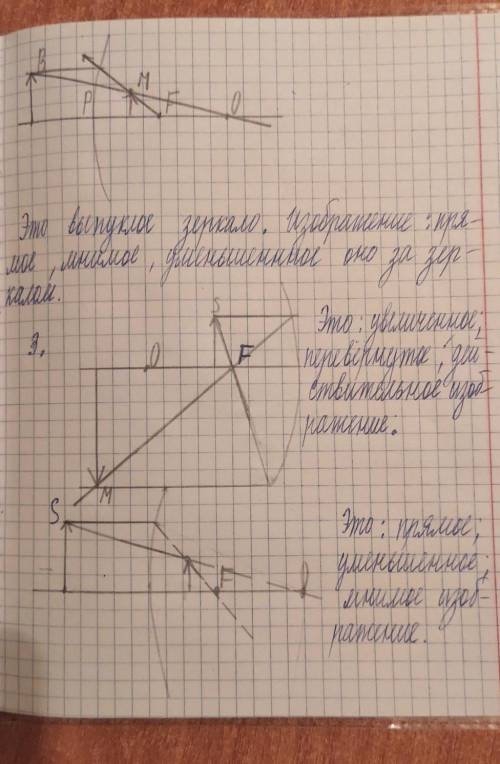 B
P M F O
Это выпуклое зеркало. Изображение: пря-
мое, мнимое, уменьшенное оно за зер-
калом.
3.
S
O F
M
Это: увеличенное;
перевёрнутое; дей-
ствительное изоб-
ражение.
S
F
Это: прямое;
уменьшенное;
мнимое изоб-
ражение.